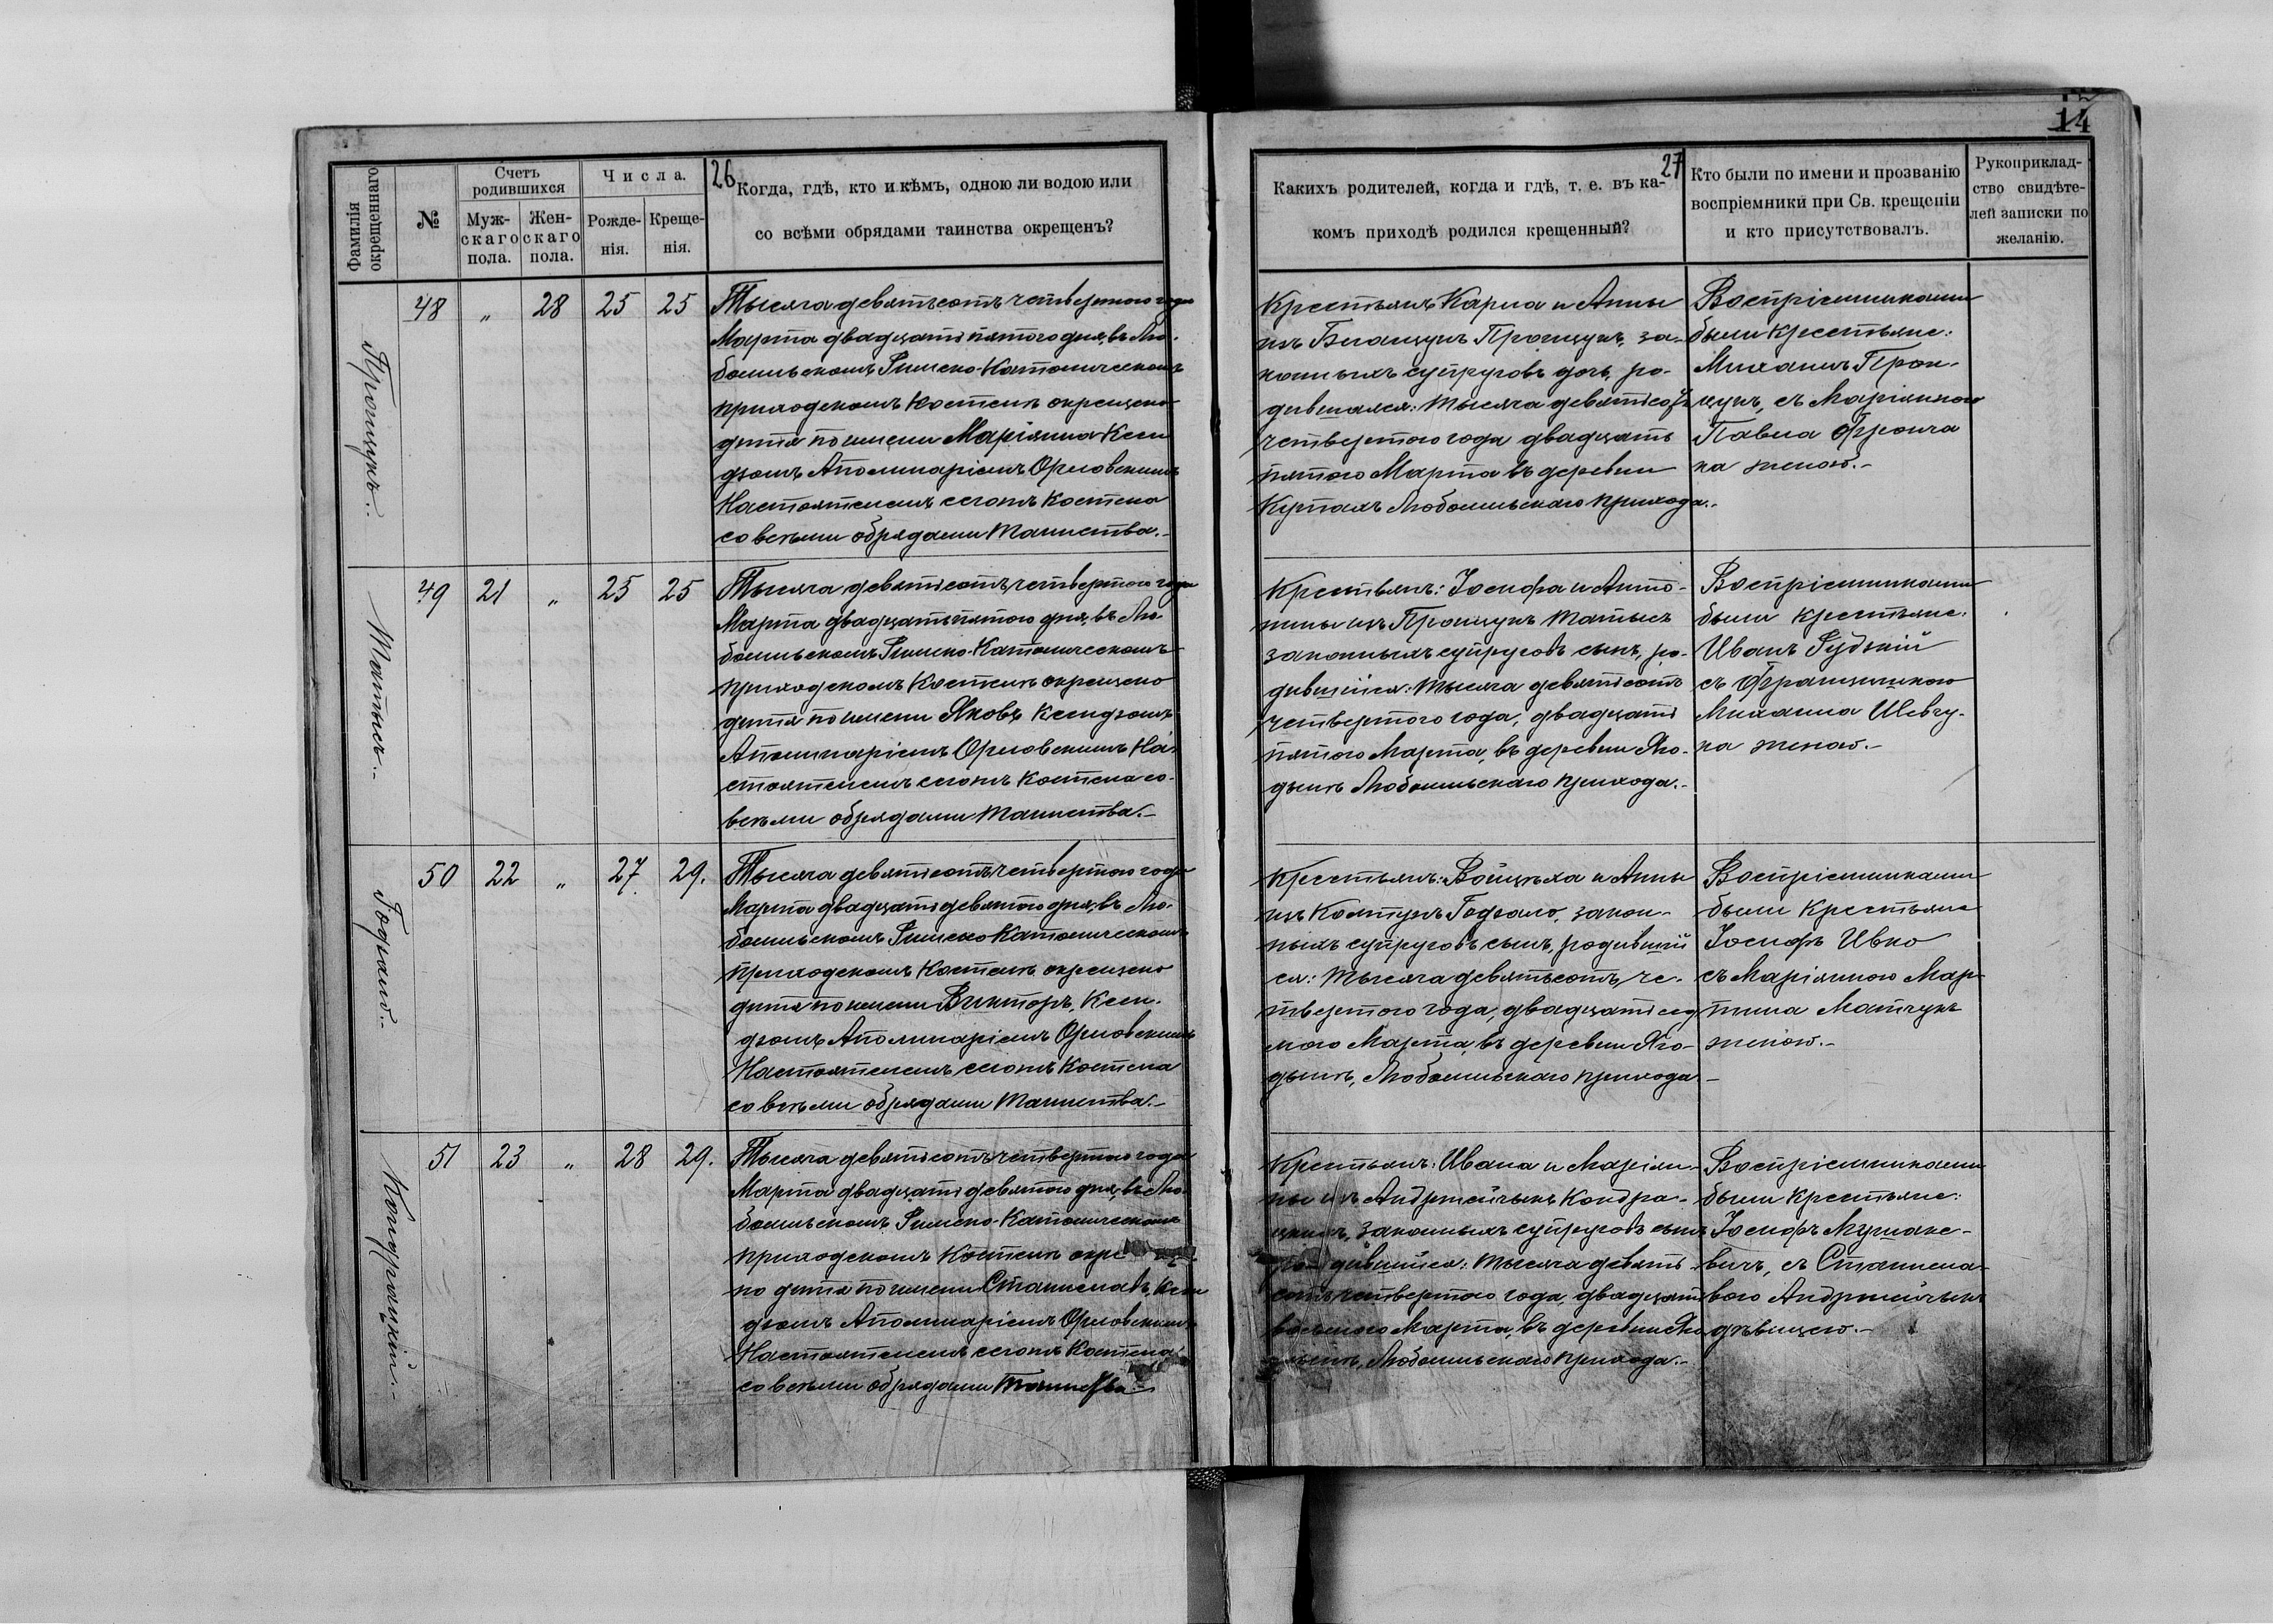 14
26
27
Фамилія окрещеннаго
№
Счетъ родившихся
Мужскаго пола.
Женскаго пола.
Числа.
Рожденія.
Крещенія.
Когда, гдѣ, кто и кѣмъ, одною ли водою или
со всѣми обрядами таинства окрещенъ?
Какихъ родителей, когда и гдѣ, т. е. въ ка-
комъ приходѣ родился крещенный?
Кто были по имени и прозванію
воспріемники при Св. крещеніи
и кто присутствовалъ.
Рукоприклад-
ство свидѣте-
лей записки по
желанію.
48 " 28 25 25
Тысяча девятьсотъ четвертого года
Марта двадцать пятого дня, въ Лю-
бомльскомъ Римско-Католическомъ
приходскомъ Костелѣ окрещено
дитя по имени Маріянна Ксен
дзомъ Аполинаріемъ Орловскимъ
Настоятелемъ сегожъ Костела
со всѣми обрядами Таинства.-
Крестьянъ Карла и Анны
изъ Прощукъ, за-
конныхъ супруговъ дочь, ро-
дившаяся: тысяча девятьсотъ
четвертого года двадцать
пятого Марта въ деревни
Кутахъ Любомльскаго прихода.-
Воспріемниками
были крестьяне:
Михаилъ Про-
щукъ, съ Маріянною
Павла
на женою.-
49 21 " 25 25
Татысъ.-
Тысяча девятьсотъ четвертого года
Марта двадцать пятого дня, въ Лю-
бомльскомъ Римско-Католическомъ
приходскомъ Костелѣ окрещено
дитя по имени Яковъ Ксендзомъ
Аполинаріемъ Орловскимъ На-
стоятелемъ сегожъ Костела со-
всѣми обрядами Таинства.-
Крестьянъ: Іосифа и Анто-
нины изъ Прощукъ Татысъ
законныхъ супруговъ сынъ, ро-
дившійся: тысяча девятьсотъ
четвертого года, двадцать
пятого Марта, въ деревни Яго-
дынѣ Любомльскаго прихода.-
Воспріемниками
были крестьяне:
Иванъ Рудзкій
съ Францишкою
Михаила Шевчу-
ка женою.-
50 22 " 27 29.
Годзало.-
Тысяча девятьсотъ четвертого года
Марта двадцать девятого дня, въ Лю-
бомльскомъ Римско Католическомъ
приходскомъ Костелѣ окрещено
дитя по имени Викторъ, Ксен-
дзомъ Аполинаріемъ Орловскимъ
Настоятелемъ сегожъ Костела
со всѣми обрядами Таинства.-
Крестьянъ: Войцѣха и Анны
изъ Колтунъ Годзало, закон-
ныхъ супруговъ сынъ, родившій
ся: тысяча девятьсотъ че-
твертого года, двадцать сед
мого Марта, въ деревни Яго-
дынѣ, Любомльскаго прихода.-
Воспріемниками
были Крестьяне
Іосифъ Ивко
съ Маріянною Мар-
тина Матчукъ
женою.-
51 23 " 28 29.
Кондрацкій.-
Тысяча девятьсотъ четвертого года
Марта двадцать девятого дня, въ Лю-
бомльскомъ Римско-Католическомъ
приходскомъ Костелѣ окре
но дитя по имени Станиславъ, Ксен
дзомъ Аполинаріемъ Орловскимъ
Настоятелемъ сегожъ Костела
со всѣми обрядами Таинства.-
Крестьянъ: Ивана и Маріян-
ны изъ Андржейчыкъ Кондра-
цкихъ, законныхъ супруговъ сынъ
родившійся: тысяча девять
сотъ четвертого года, двадцать
восьмого Марта, въ деревни Яго
дынѣ, Любомльскаго прихода.-
Воспріемниками
были крестьяне:
Іосифъ
вичъ, съ Станисла-
вою Андржейчыкъ
дѣвицею.-